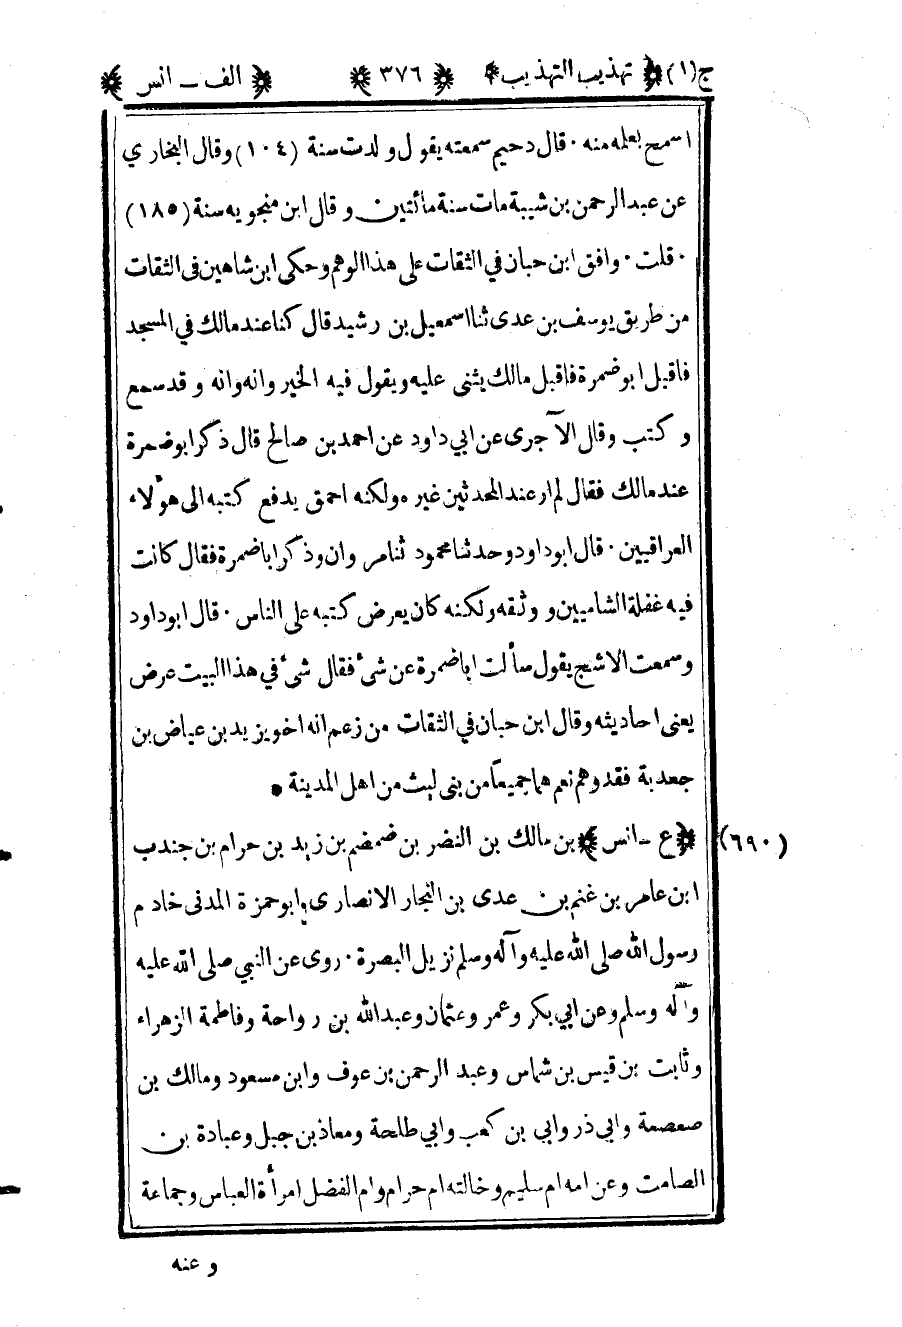 ج(١) ﴿ تهذيب التهذيب ﴾ ﴿ ٣٧٦ ﴾ ﴿ الف ــ انس ﴾
اسمح بعلمه منه · قال دحيم سمعته يقول ولدت سنة (١٠٤) وقال البخاري
عن عبد الرحمن بن شيبة مات سنة مائتين وقال ابن منجويه سنة (١٨٥)
· قلت · وافق ابن حبان في الثقات على هذا الوهم وحكى ابن شاهين فى الثقات
من طريق يوسف بن عدى ثنا اسمعيل بن رشيد قال كنا عند مالك في المسجد
فاقبل ابو ضمرة فاقبل مالك يثنى عليه ويقول فيه الخير وانه وانه وقد سمع
وكتب وقال الآجرى عن ابي داود عن احمد بن صالح قال ذكر ابو ضمرة
عند مالك فقال لم ار عند المحدثين غيره ولكنه احمق يدفع كتبه الى هؤلاء
العراقيين · قال ابو داود وحدثنا محمود ثنا مروان وذكر ابا ضمرة فقال كانت
فيه غفلة الشاميين ووثقه ولكنه كان يعرض كتبه على الناس · قال ابو داود
وسمعت الاشج يقول سألت ابا ضمرة عن شئ فقال شئ في هذا البيت عرض
يعنى احاديثه وقال ابن حبان في الثقات من زعم انه اخو يزيد بن عياض بن
جعدبة فقد وهم نعم هما جميعاً من بنى ليث من اهل المدينة •
(٦٩٠) ﴿ ع ــ انس ﴾ بن مالك بن النضر بن ضمضم بن زيد بن حرام بن جندب
ابن عامر بن غنم بن عدى بن النجار الانصارى ابو حمزة المدنى خادم
رسول الله صلى الله عليه وآله وسلم نزيل البصرة · روى عن النبي صلى الله عليه
وآله وسلم وعن ابي بكر وعمر وعثمان وعبد الله بن رواحة وفاطمة الزهراء
وثابت بن قيس بن شماس وعبد الرحمن بن عوف وابن مسعود ومالك بن
صعصعة وابي ذر وابي بن كعب وابي طلحة ومعاذ بن جبل وعبادة بن
الصامت وعن امه ام سليم وخالته ام حرام وام الفضل امرأة العباس وجماعة
وعنه